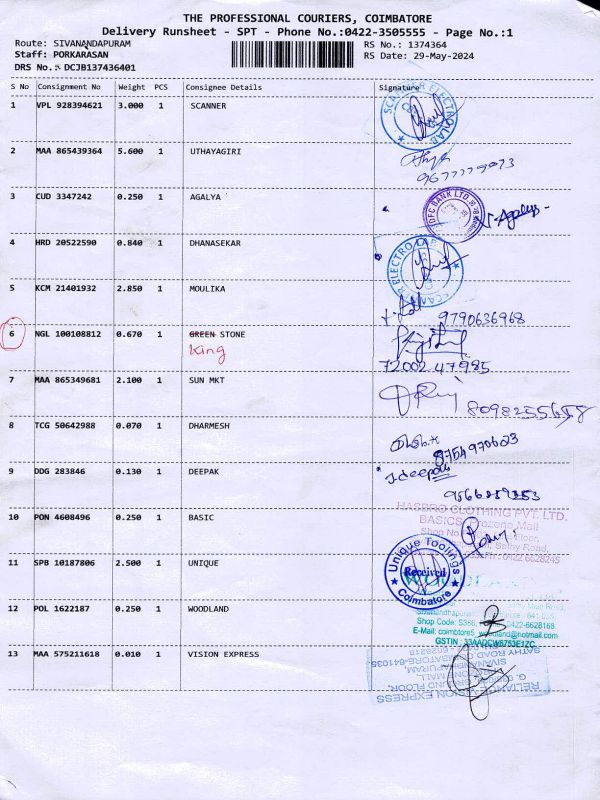 THE PROFESSIONAL COURIERS, COIMBATORE
Delivery Runsheet - SPT - Phone No.:0422-3505555 - Page No.:1
Route: SIVANANDAPURAM
RS No.: 1374364
Staff: PORKARASAN
RS Date: 29-May-2024
DRS No.: DCJB137436401
S No Consignment No Weight PCS Consignee Details Signature
1 VPL 928394621 3.000 1 SCANNER
SCANNER ELECTROLAB
2 MAA 865439364 5.600 1 UTHAYAGIRI
3 CUD 3347242 0.250 1 AGALYA
BANK LTD
Agalya
4 HRD 20522590 0.840 1 DHANASEKAR
ELECTRO LAB
5 KCM 21401932 2.850 1 MOULIKA
9790636968
6 NGL 100108812 0.670 1 GREEN STONE
king
7200247985
7 MAA 865349681 2.100 1 SUN MKT
8098255658
8 TCG 50642988 0.070 1 DHARMESH
8754970623
9 DDG 283846 0.130 1 DEEPAK
J.deepak
HASBRO CLOTHING PVT. LTD.
10 PON 4608496 0.250 1 BASIC
BASICS, Prozone Mall
Shop No
Floor,
Sathy Road,
0422 6628245
11 SPB 10187806 2.500 1 UNIQUE
Unique Toolings
Received
Coimbatore
12 POL 1622187 0.250 1 WOODLAND
Shop Code: S386, 0422-6628168
E-Mail: coimbatore5_woodland@hotmail.com
GSTIN : 33AADCW8753E1ZC
13 MAA 575211618 0.010 1 VISION EXPRESS
RELIANCE VISION EXPRESS
GROUND FLOOR,
MALL
SIVANANDAPURAM
SATHY ROAD COIMBATORE-641035